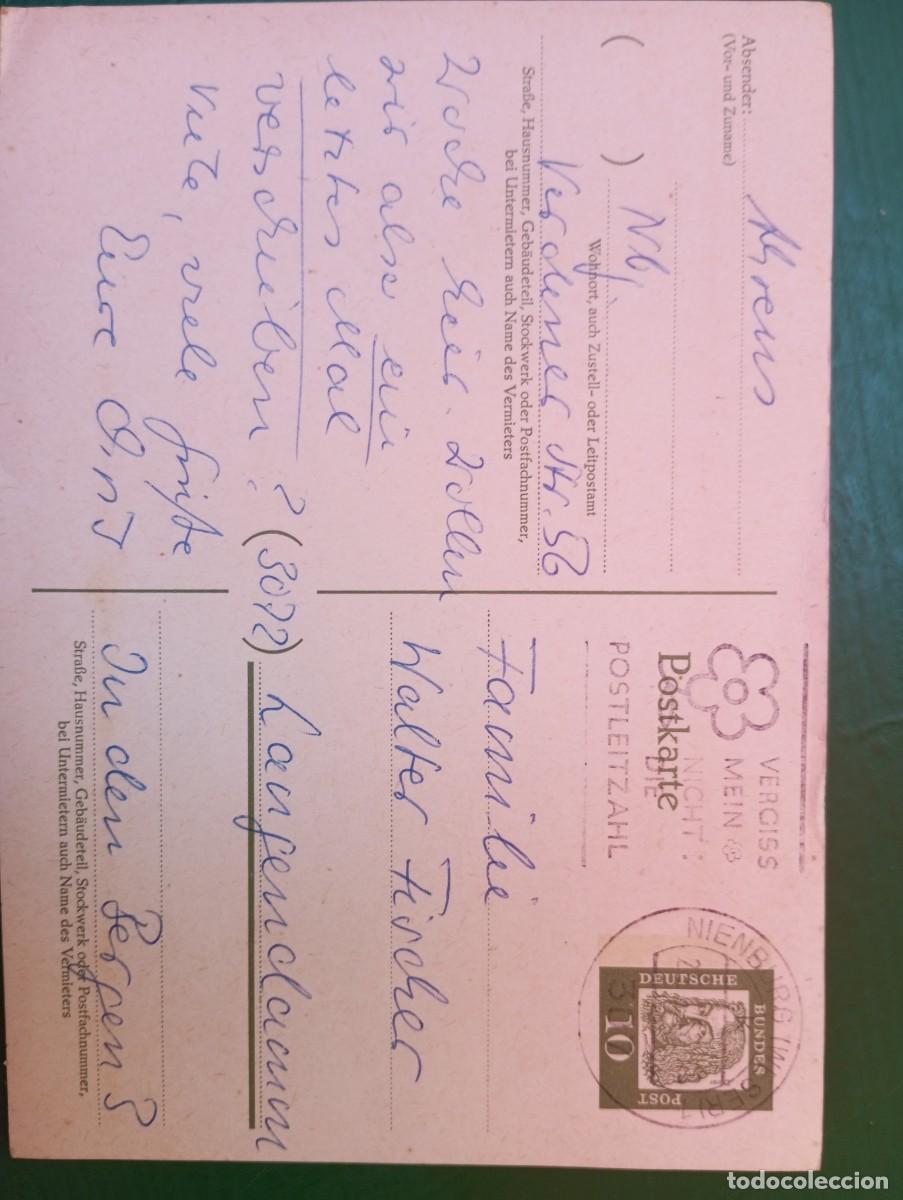 Absender:
(Vor- und Zuname)
Ahrens
Nbg.
( )
Wohnort, auch Zustell- oder Leitpostamt
Verdener Str. 56
Straße, Hausnummer, Gebäudeteil, Stockwerk oder Postfachnummer,
bei Untermietern auch Name des Vermieters
Woche hier. Wollen
wir also ein
letztes Mal
verschieben?
viele
Eure
VERGISS
MEIN
NICHT:
DIE
POSTLEITZAHL
Postkarte
NIENBURG (WESER) 1
DEUTSCHE
BUNDES
POST
10
Familie
Walter Fischer
(3072) Langendamm
In den Bergen 3
Straße, Hausnummer, Gebäudeteil, Stockwerk oder Postfachnummer,
bei Untermietern auch Name des Vermieters
todocoleccion